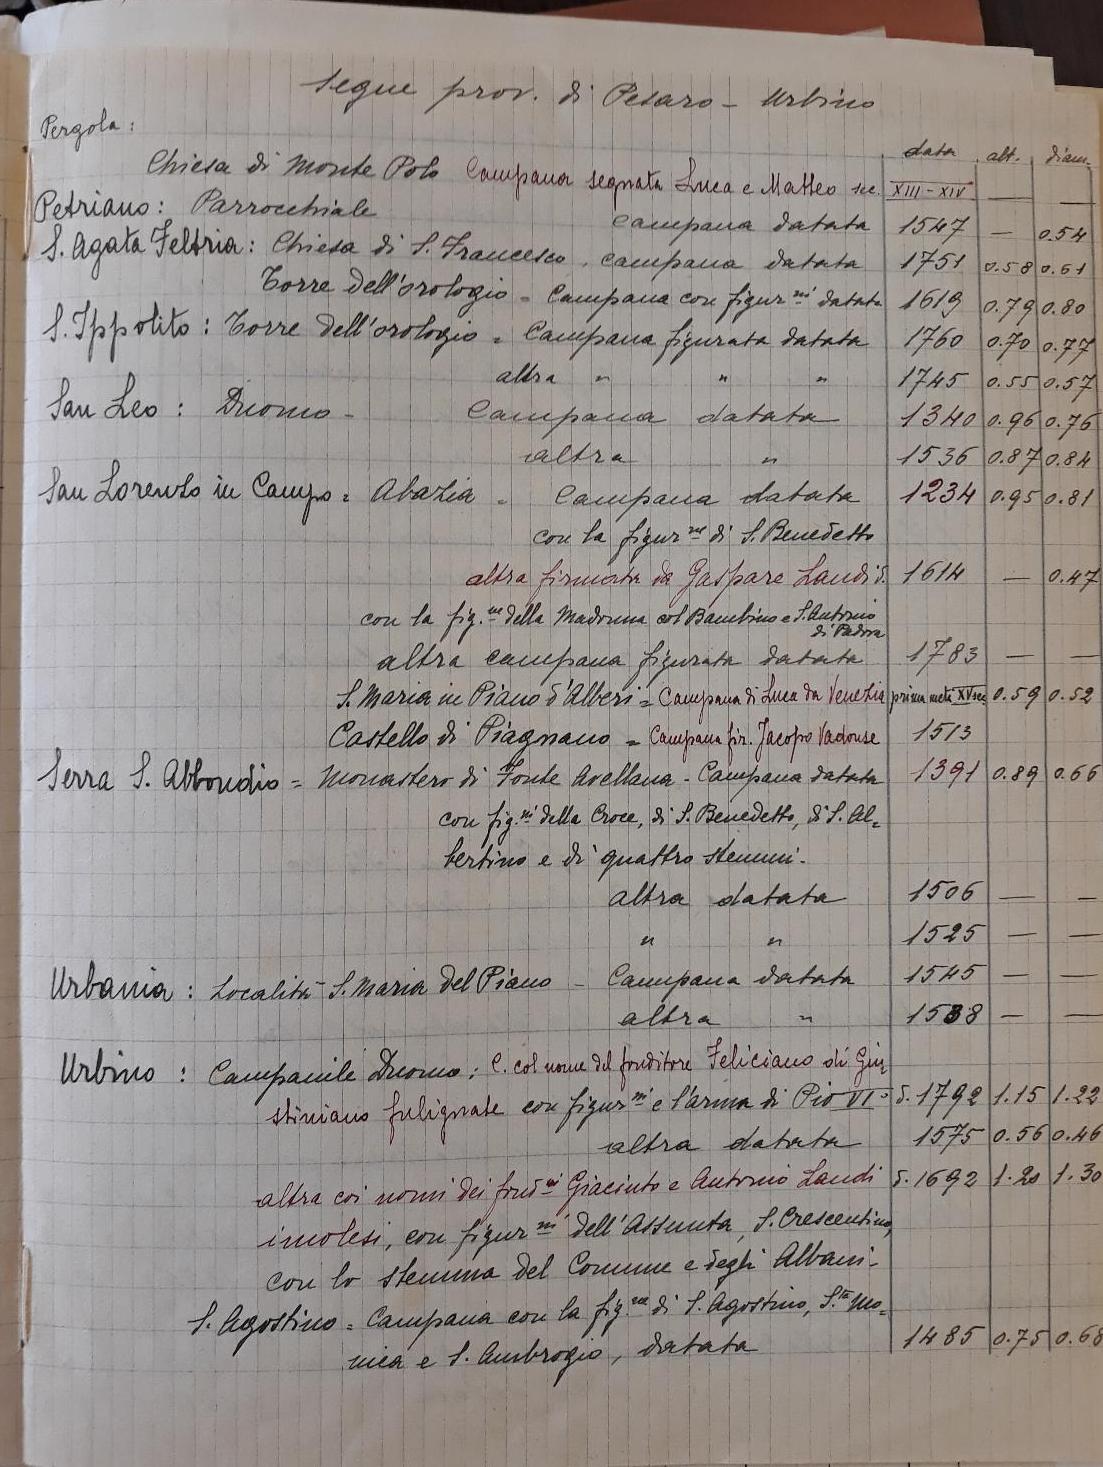 Segue prov. di Pesaro - Urbino
Pergola:
data alt. diam.
Chiesa di Monte Polo Campana segnata Luca e Matteo sec. XIII-XIV — —
Petriano: Parrocchiale campana datata 1547 — 0.54
S. Agata Feltria: Chiesa di S. Francesco. campana datata 1751 0.58 0.61
Torre dell'orologio = Campana con figur.ni datata 1619 0.79 0.80
S. Ippolito: Torre dell'orologio = Campana figurata datata 1760 0.70 0.77
altra " " " 1745 0.55 0.57
San Leo: Duomo - Campana datata 1340 0.96 0.76
altra " 1536 0.87 0.84
San Lorenzo in Campo = Abazia = Campana datata 1234 0.95 0.81
con la figur.ne di S. Benedetto
altra firmata da Gaspare Landi d. 1614 — 0.47
con la fig.ne della Madonna col Bambino e S. Antonio
di Padova
altra campana figurata datata 1783 — —
S. Maria in Piano d'Alberi = Campana di Luca da Venezia prima metà XV sec. 0.59 0.52
Castello di Piagnano = Campana fir. Jacopo 1513
Serra S. Abbondio = Monastero di Fonte Avellana - Campana datata 1391 0.89 0.66
con fig.ni della Croce, di S. Benedetto, di S. Al=
bertino e di quattro stemmi.
altra datata 1506 — —
" " 1525 — —
Urbania: Località S. Maria del Piano - Campana datata 1545 — —
altra " 1538 — —
Urbino: Campanile Duomo; C. col nome del fonditore Feliciano di Giu
stiniano fulignate con figur.ni e l'arma di Pio VI° d. 1792 1.15 1.22
altra datata 1575 0.56 0.46
altra coi nomi dei fond.ri Giacinto e Antonio Landi d. 1692 1.20 1.30
imolesi, con figur.ni dell'Assunta, S. Crescentino,
con lo stemma del Comune e degli Albani.
S. Agostino = Campana con la fig.ne di S. Agostino, S.ta Mo=
nica e S. Ambrogio, datata 1485 0.75 0.68